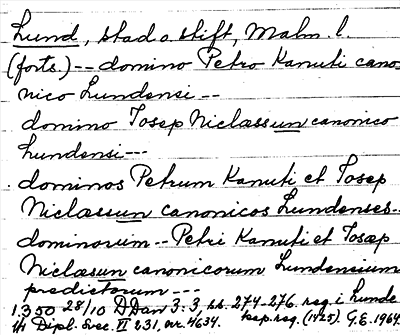 Lund, stad o. stift, Malm. l.
(forts.) -- domino Petro Kanuti cano-
nico Lundensi --
domino Josep Niclæssun canonico
Lundensi ---
dominos Petrum Kanuti et Josep
Niclæssun canonicos Lundenses --
dominorum -- Petri Kanuti et Josæp
Niclæsun canonicorum Lundensium
predictorum ---
1350 28/10 DDan 3:3 s. 274-276. reg. i Lunde
th Dipl. Svec. VI 231, nr. 4634. ksp. reg. (1425). G.E. 1964